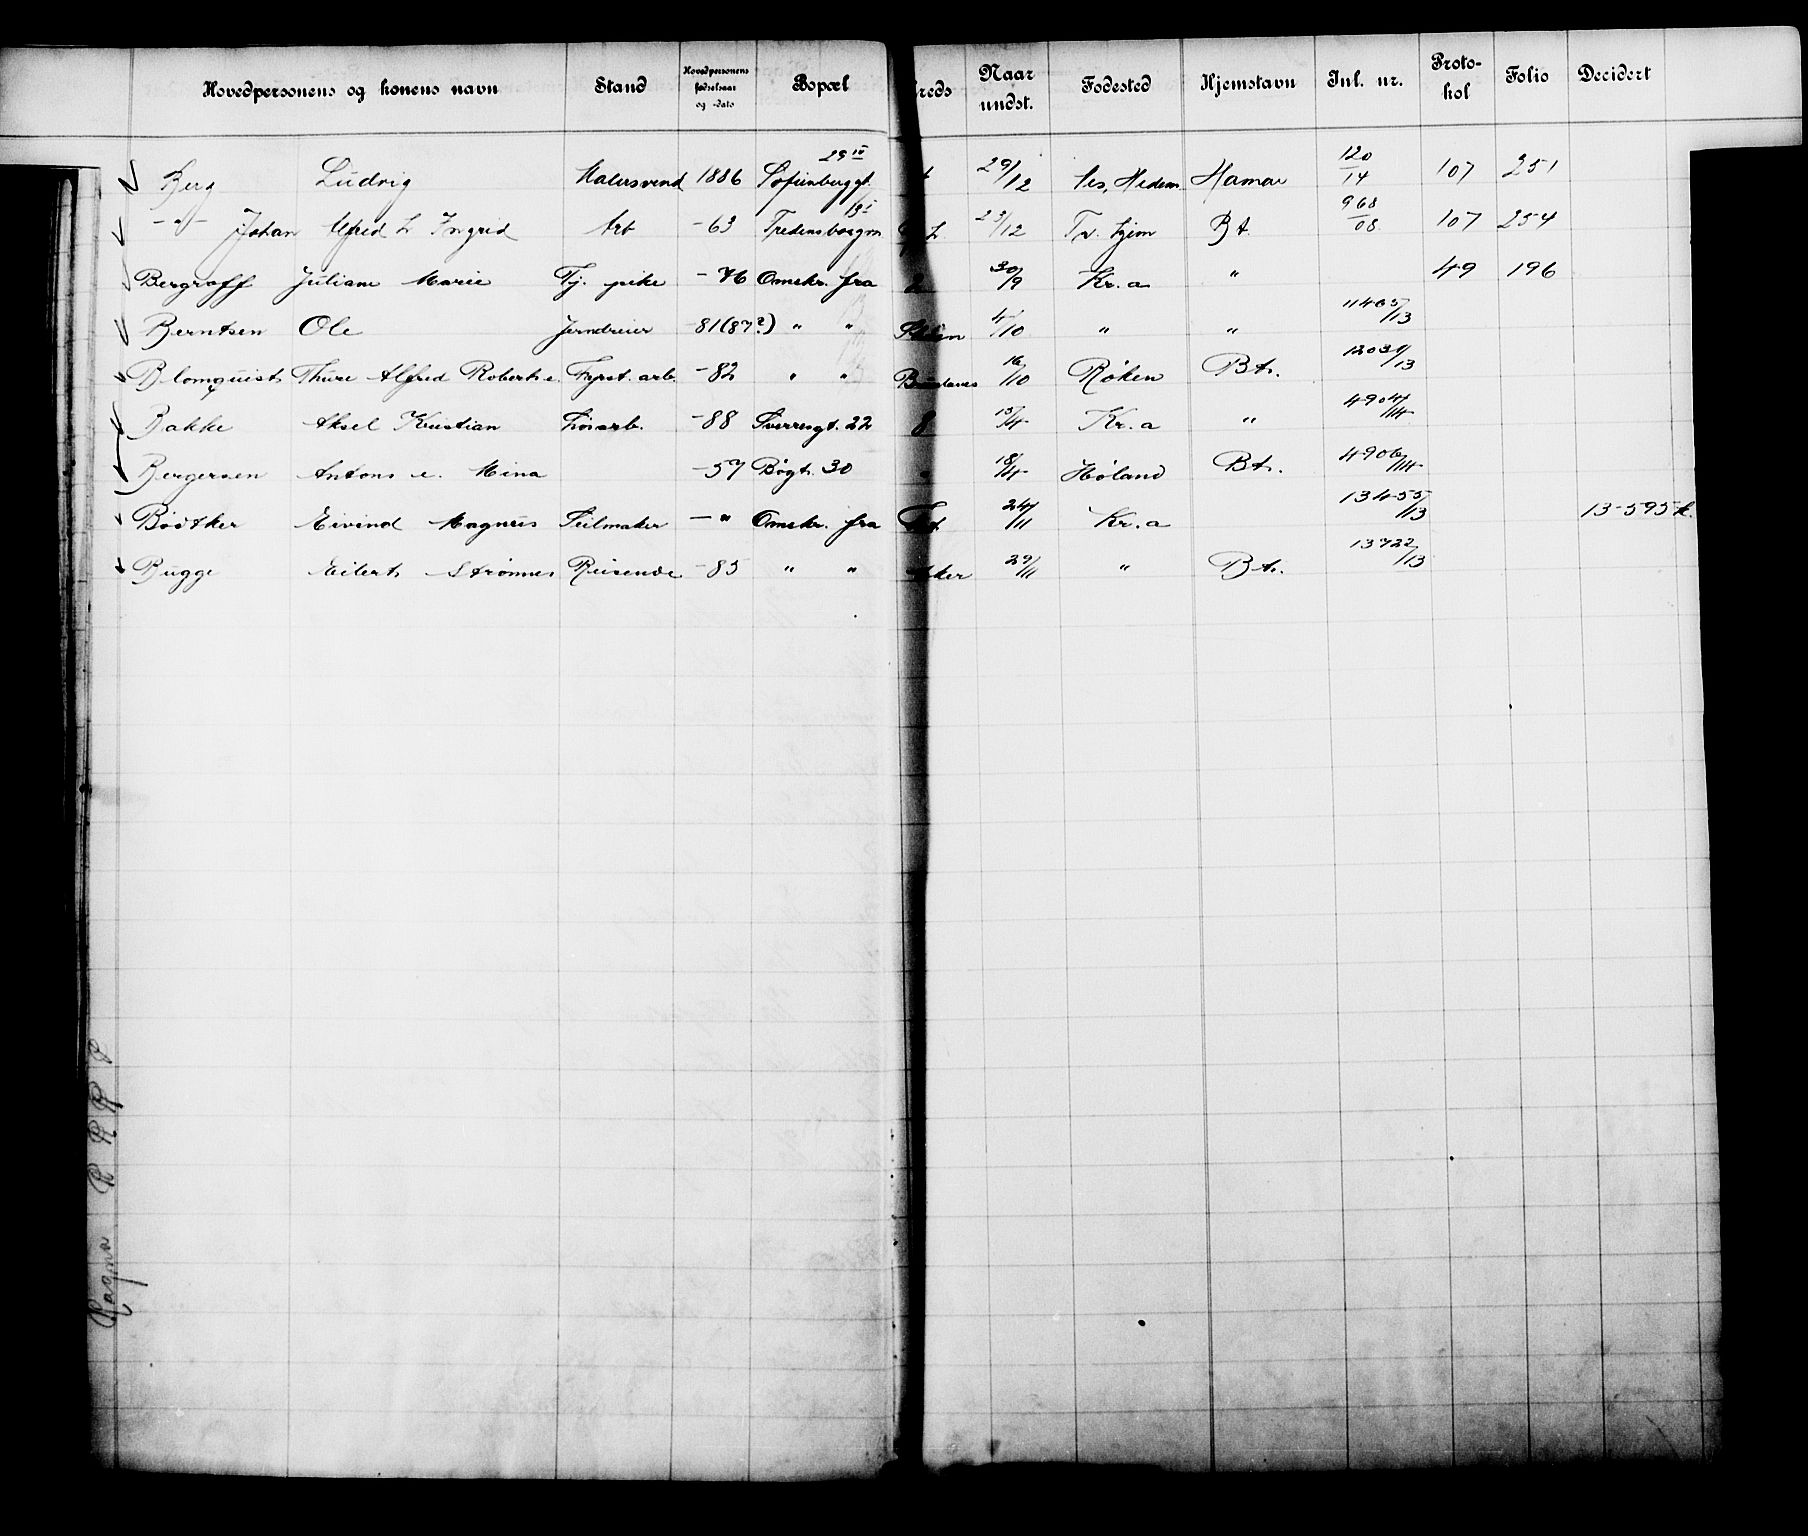 Hovedpersonens og konens navn Stand Hovedpersonens fødselsaar og -dato Bopæl reds Naar undst. Fødested Hjemstavn Inl. nr. Proto-kol Folio Decidert
Berg Ludvig Malersvend 1886 Sofienberggt. 29 IV 29/12 Hedem Hamar 120/14 107 251
-"- Johan Alfred Ingrid Arb -63 Fredensborgvn 13 I 23/12 Tv. hjem Bt. 968/08 107 254
Bergraff Juliane Marie Tj. pike -76 Omskr. fra 2 30/9 Kr.a " 49 196
Berntsen Ole Jerndreier -81 (87?) " " 4/10 " " 11405/13
Blomquist Thure Alfred Robert e. Fyrst. arb. -82 " " 16/10 Røken Bt. 12031/13
Bakke Aksel Kristian Løsarb. -88 Sverresgt. 22 8 15/4 Kr.a " 4904/14
Bergersen Antons e. Mina -57 Bøgt. 30 " 18/4 Høland Bt. 4906/14
Bødtker Eivind Magnus Seilmaker -" Omskr. fra 24/11 Kr.a 13455/13 13-595
Bugge Eilert Strømnes Reisende -85 " " Aker 29/11 " Bt. 13722/13
Ragna R R R